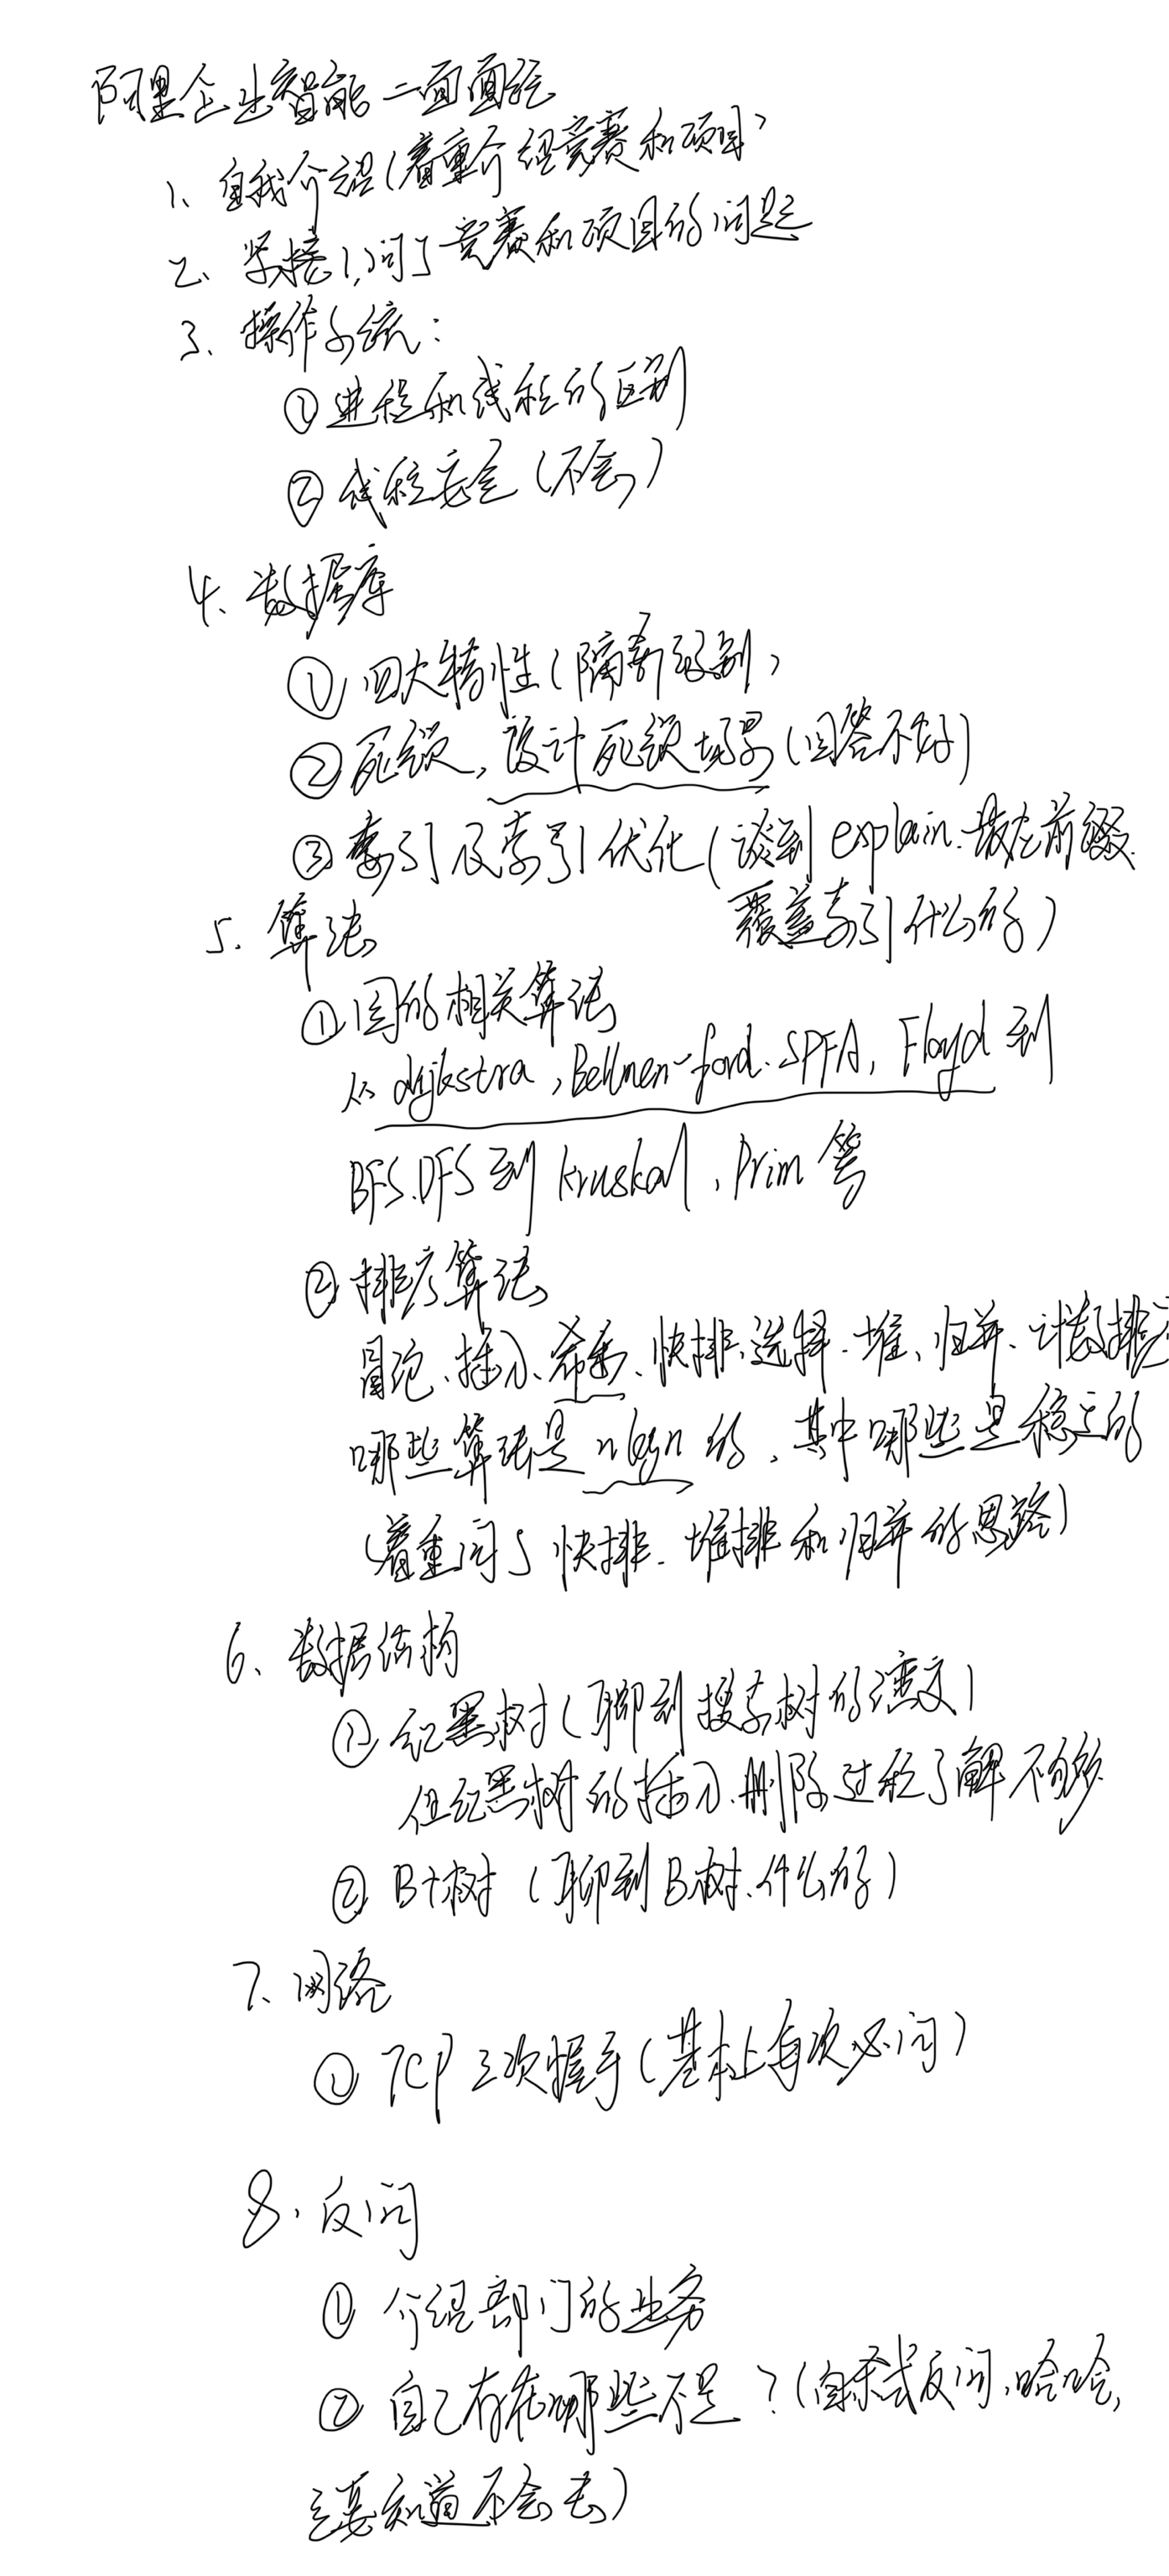 阿里企业智能二面面经
1、自我介绍(着重介绍竞赛和项目)
2、紧接1,问了竞赛和项目的问题
3、操作系统:
①进程和线程的区别
②线程安全(不会)
4、数据库
①四大特性(隔离级别)
②死锁,设计死锁场景(回答不好)
③索引及索引优化(谈到explain、最左前缀、
覆盖索引什么的)
5、算法
①图的相关算法
从dijkstra,Bellmen-ford、SPFA,Floyd到
BFS、DFS到kruskal、Prim等
②排序算法
冒泡、插入、希尔、快排、选择、堆、归并、计数排序
哪些算法是nlogn的、其中哪些是稳定的
(着重问了快排、堆排和归并的思路)
6、数据结构
①红黑树(聊到搜索树的演变)
但红黑树的插入、删除过程了解不够
②B+树(聊到B树、什么的)
7、网络
①TCP三次握手(基本上每次必问)
8、反问
①介绍部门的业务
②自己存在哪些不足?(自杀式反问,哈哈,
主要知道不会去)